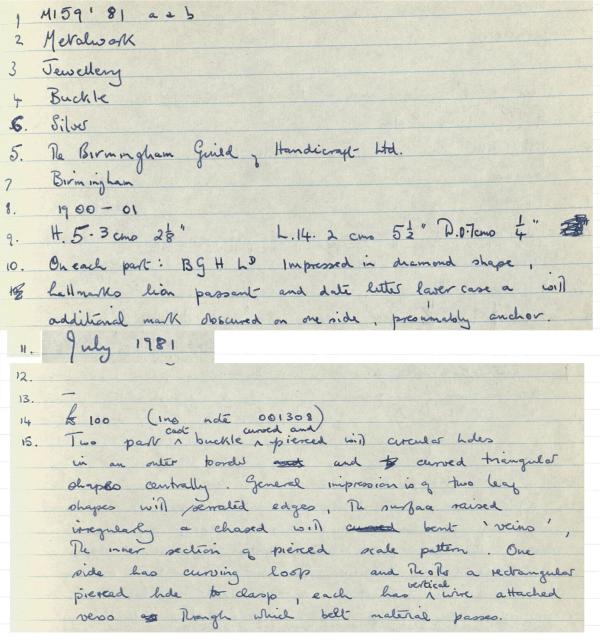 1 M159' 81 a & b
2 Metalwork
3 Jewellery
4 Buckle
6. Silver
5. The Birmingham Guild of Handicraft Ltd.
7 Birmingham
8. 1900 - 01
9. H. 5.3 cms 2 1/8" L. 14.2 cms 5 1/2" D. 0.7 cms 1/4"
10. On each part: B G H Lᴰ impressed in diamond shape,
hallmarks lion passant and date letter lower case a with
additional mark obscured on one side, presumably anchor.
11. July 1981
12.
13. —
14 £ 100 (inv note 001308)
15. Two part cast buckle curved and pierced with circular holes
in an outer border and curved triangular
shapes centrally. General impression is of two leaf
shapes with serrated edges, The surface raised
irregularly & chased with bent 'veins',
The inner section of pierced scale pattern. One
side has curving loop and the other a rectangular
pierced hole to clasp, each has vertical wire attached
verso through which belt material passes.